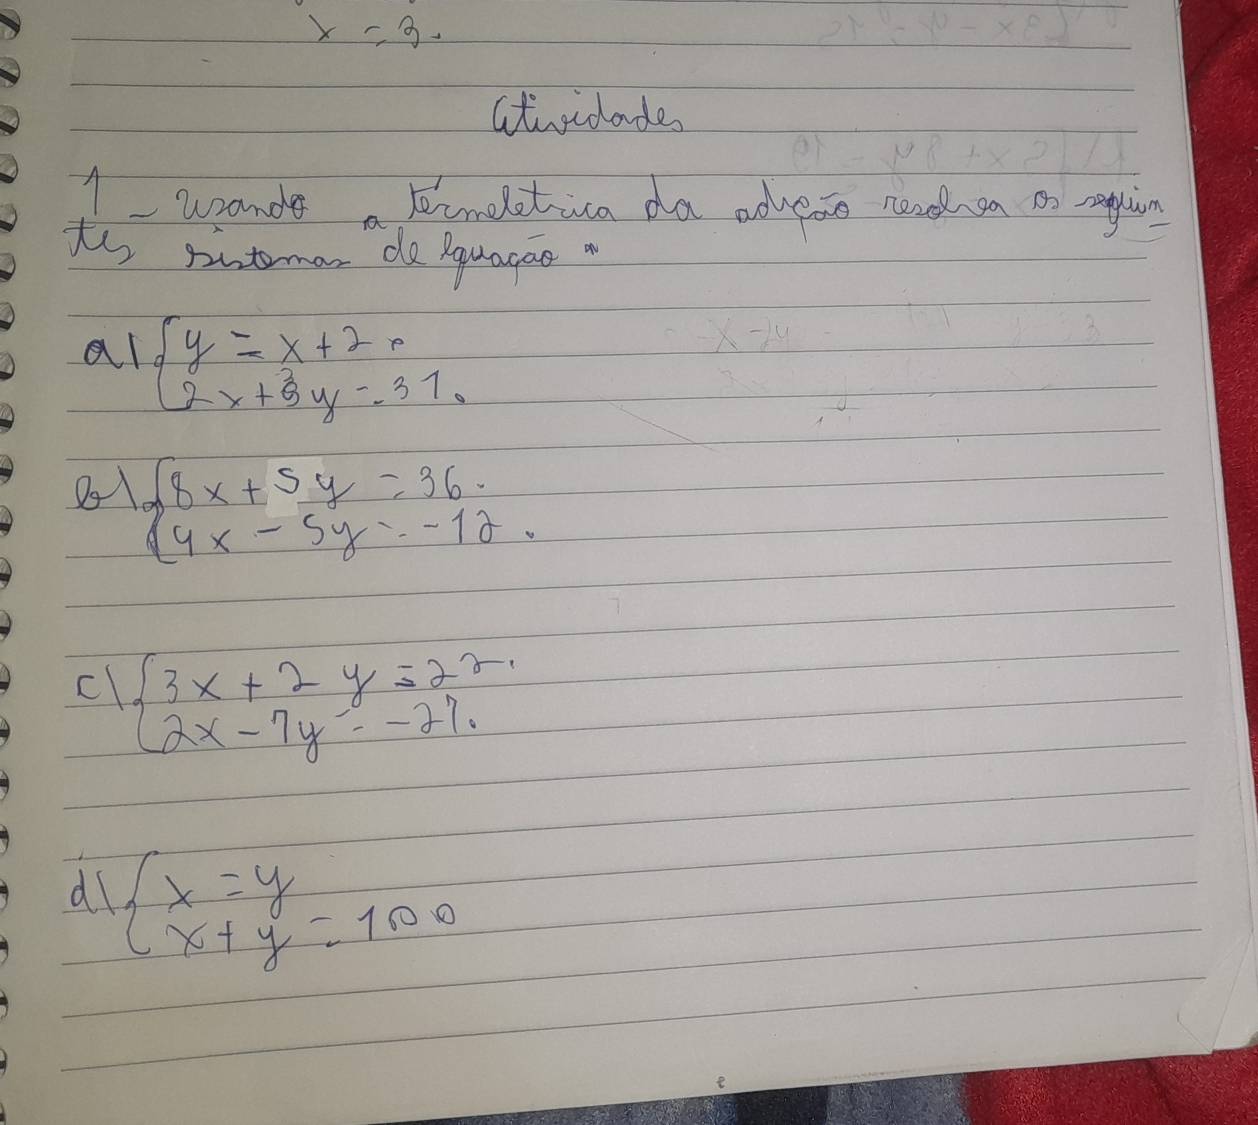 x = 3.
Atividades
1 - Usando a térmeletrica da adição resolva os seguin-
tes sistemas de Equação
a) { y = x + 2.
2x + 3y = 31.
b) { 8x + 5y = 36.
4x - 5y = -12.
c) { 3x + 2y = 22.
2x - 7y = -27.
d) { x = y
x + y = 100